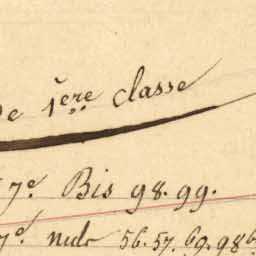 de 1ère classe
7e Bis 98. 99.
7e. nulo 56. 57. 69. 98b